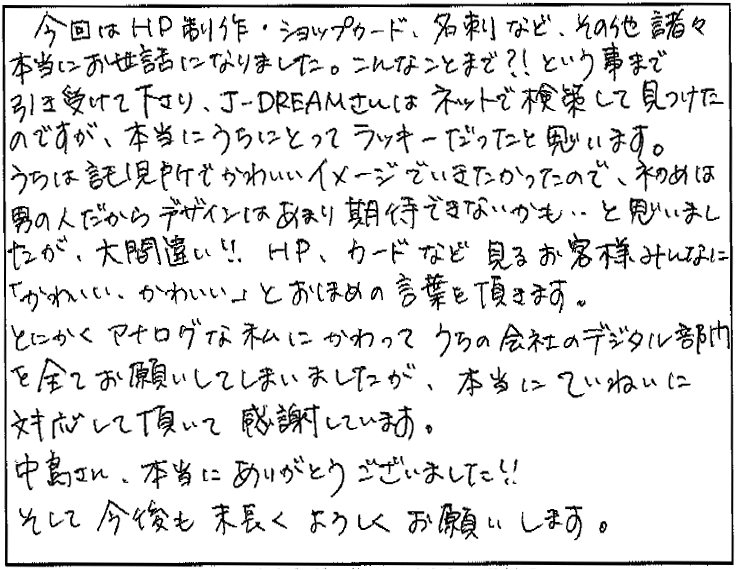 今回はHP制作・ショップカード、名刺など、その他諸々
本当にお世話になりました。こんなことまで?!という事まで
引き受けて下さり、J-DREAMさんはネットで検索して見つけた
のですが、本当にうちにとってラッキーだったと思います。
うちは託児所でかわいいイメージでいきたかったので、初めは
男の人だからデザインはあまり期待できないかも‥と思いまし
たが、大間違い!! HP、カードなど見るお客様みんなに
「かわいい、かわいい」とおほめの言葉を頂きます。
とにかくアナログな私にかわってうちの会社のデジタル部門
を全てお願いしてしまいましたが、本当にていねいに
対応して頂いて感謝しています。
中島さん、本当にありがとうございました!!
そして今後も末長くよろしくお願いします。